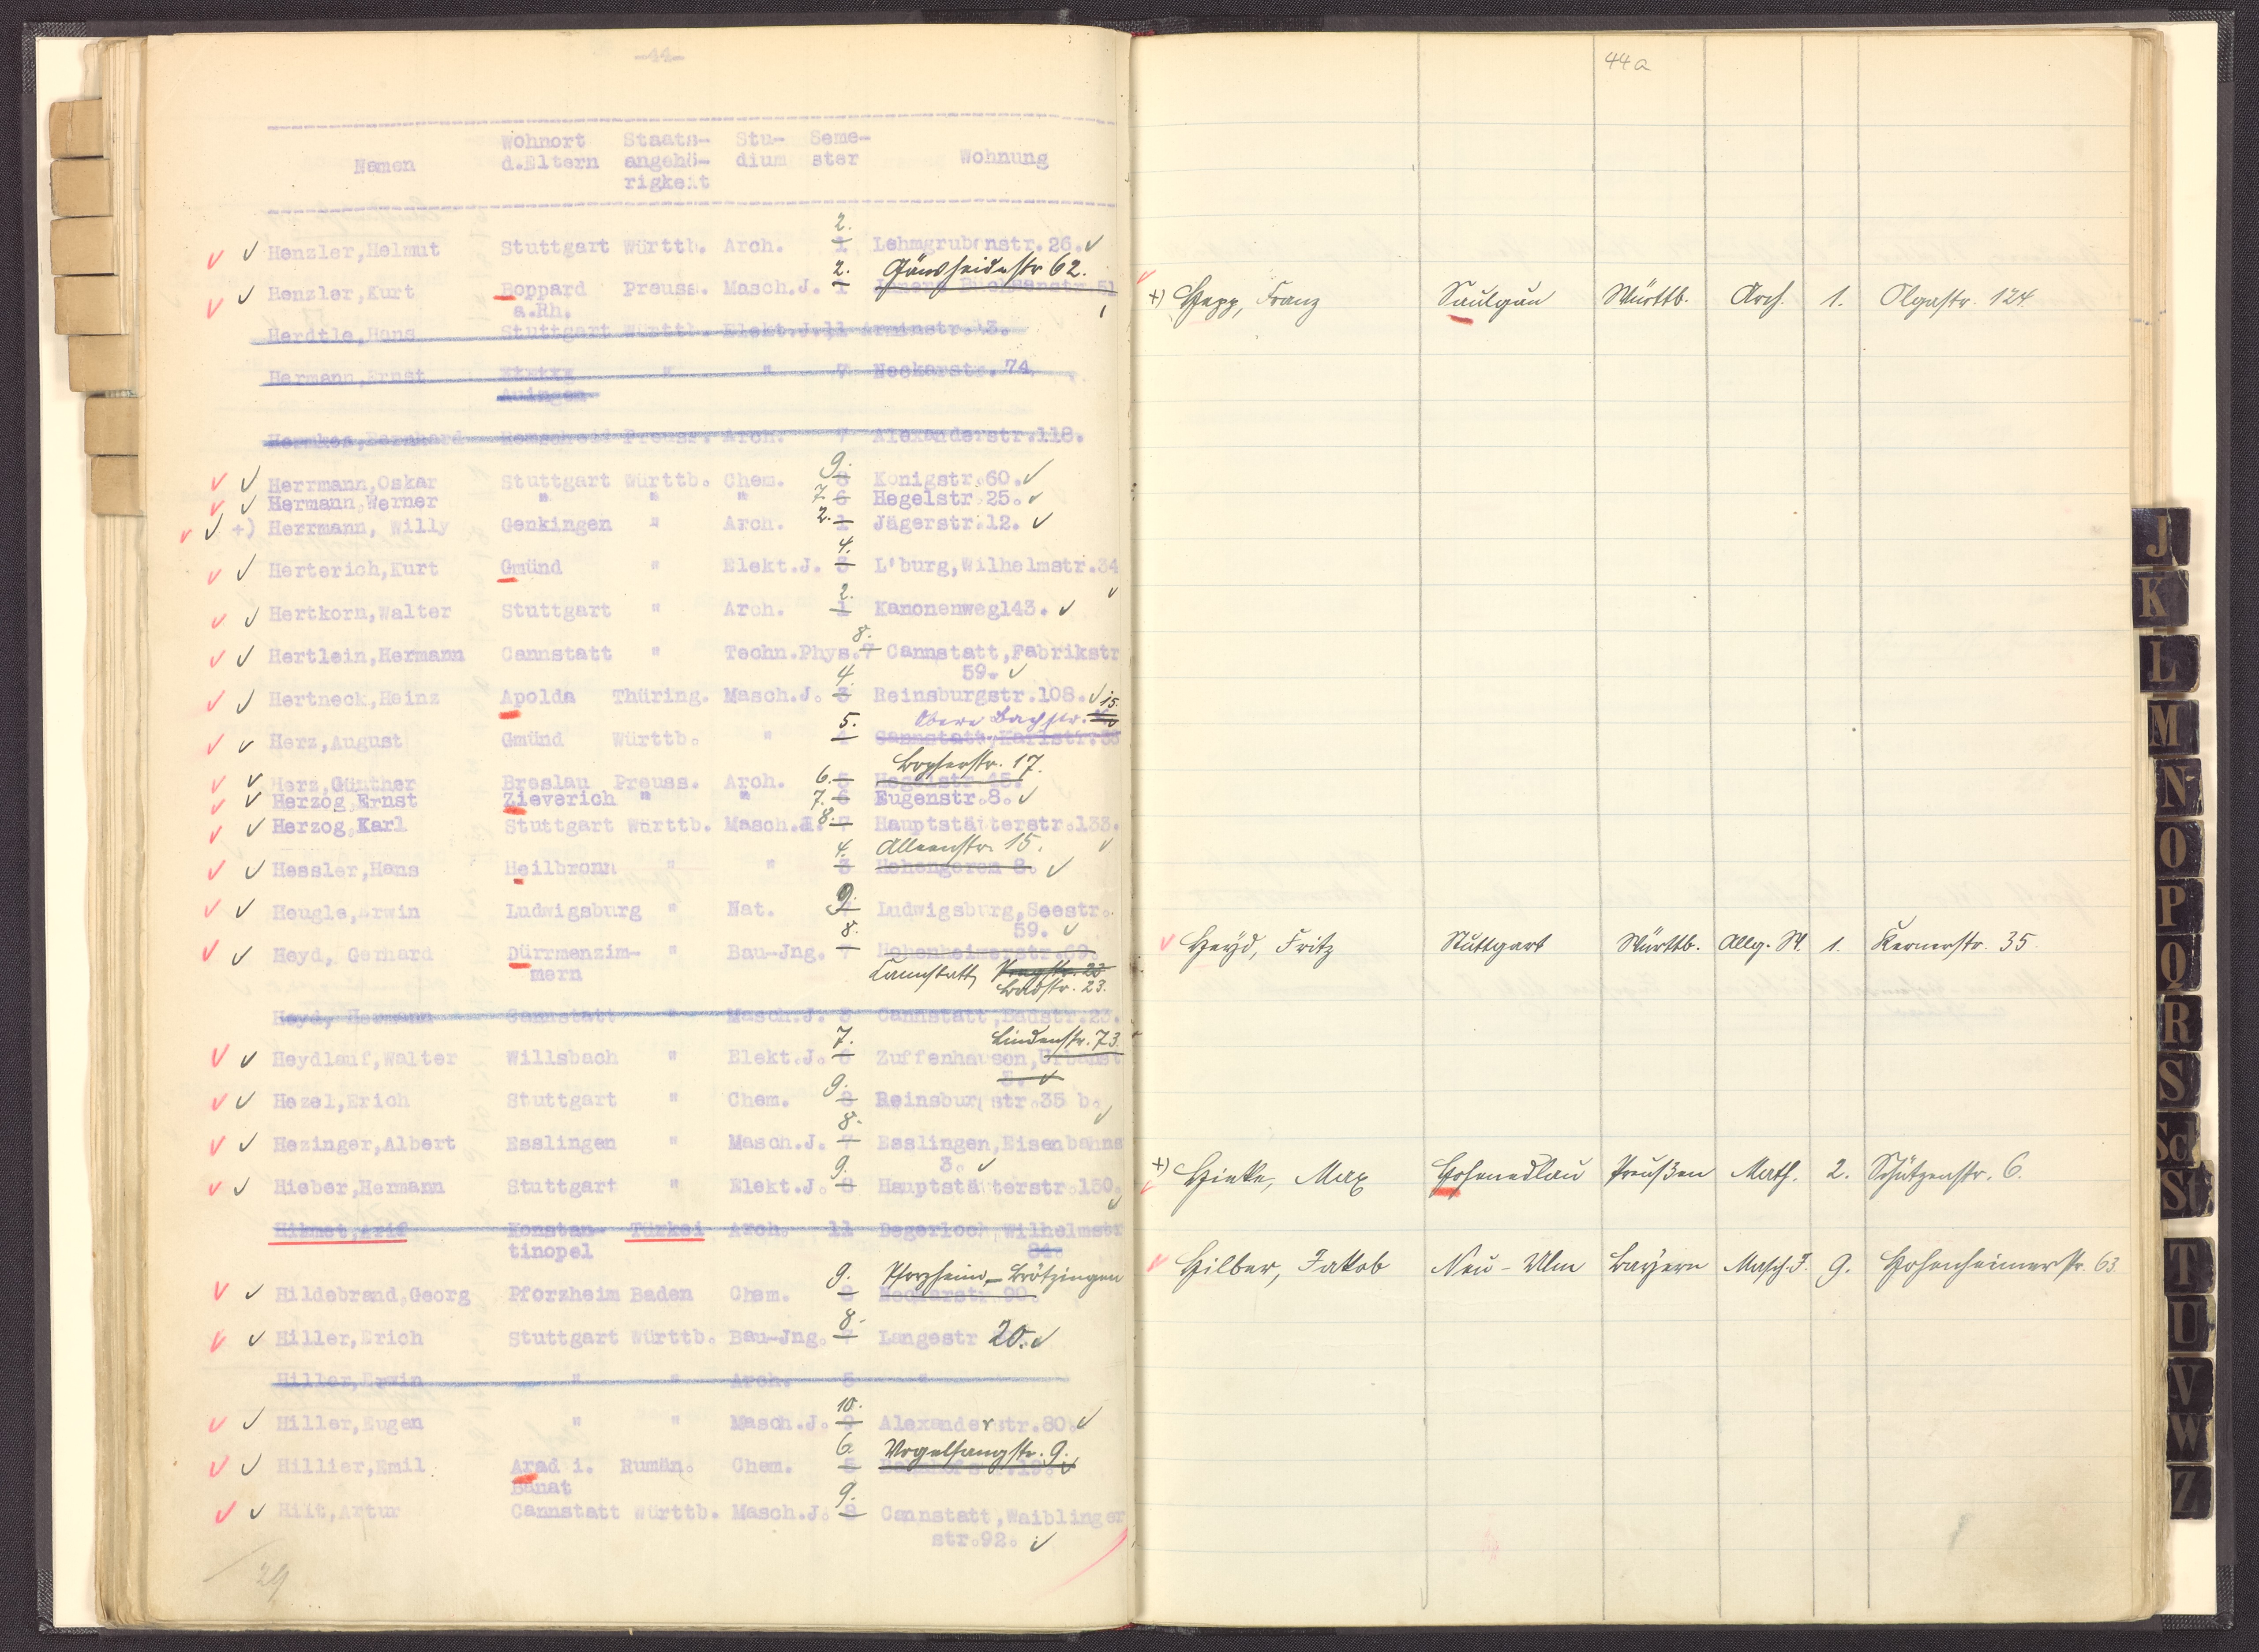 -44-
Wohnort Staats- Stu- Seme-
Namen d.Eltern angehö- dium ster Wohnung
rigkeit
2.
Henzler,Helmut Stuttgart Württb. Arch. 1 Lehmgrubenstr.26.
2. Gänsheidestr 62.
Henzler,Kurt Boppard Preuss. Masch.J. 1 51
a.Rh.
Herdtle,Hans Stuttgart Württb. Elekt.J. 11 Arminstr.43.
Hermann,Ernst " " 7 Neckarstr.74.
Auingen
Hermkes,Bernhard Remscheid Preuss. Arch. 7 Alexanderstr.118.
9.
Herrmann,Oskar Stuttgart Württb. Chem. 8 Königstr.60.
Hermann,Werner " " " 7. 6 Hegelstr.25.
+) Herrmann, Willy Genkingen " Arch. 2. 1 Jägerstr.12.
4.
Herterich,Kurt Gmünd " Elekt.J. 3 L'burg,Wilhelmstr.34
2.
Hertkorn,Walter Stuttgart " Arch. 1 Kanonenweg143.
8.
Hertlein,Hermann Cannstatt " Techn.Phys.7 Cannstatt,Fabrikstr
4. 59.
Hertneck,Heinz Apolda Thüring. Masch.J. 3 Reinsburgstr.108.
5. Obere Bachstr. 15.
Herz,August Gmünd Württb. " 4 Cannstatt,Karlstr.33
Bopserstr. 17.
Herz,Günther Breslau Preuss. Arch. 6. 5 Hegelstr.15.
Herzog Ernst Zieverich " " 7. 6 Eugenstr.8.
Herzog,Karl Stuttgart Württb. Masch.J. 8. 7 Hauptstätterstr.133.
4. Alleenstr. 15.
Hessler,Hans Heilbronn " " 3 Hohengeren 8.
9.
Heugle,Erwin Ludwigsburg " Nat. Ludwigsburg,Seestr.
8. 59.
Heyd, Gerhard Dürrmenzim- " Bau-Jng. 7 Hohenheimerstr.69.
mern Cannstatt, 23
Badstr. 23.
Heyd, Hermann Cannstatt " Masch.J. 3 Cannstatt,Badstr.23.
7. Lindenstr. 73.
Heydlauf,Walter Willsbach " Elekt.J. 6 Zuffenhausen,Urbanst
3.
9.
Hezel,Erich Stuttgart " Chem. 8 Reinsburgstr.35 b.
8.
Hezinger,Albert Esslingen " Masch.J. 7 Esslingen,Eisenbahns
9. 3.
Hieber,Hermann Stuttgart " Elekt.J. 8 Hauptstätterstr.150.
Hikmet,Arif Konstan- Türkei Arch. 11 Degerloch,Wilhelmstr
tinopel
9. Pforzheim-Brötzingen
Hildebrand,Georg Pforzheim Baden Chem. 8 Neckarstr.90.
8.
Hiller,Erich Stuttgart Württb. Bau-Jng. 7 Langestr 20.
Hiller,Erwin " " Arch. 5 "
10.
Hiller,Eugen " " Masch.J. 9 Alexanderstr.80.
6. Vogelsangstr. 9.
Hillier,Emil Arad i. Rumän. Chem. 5
Banat
9.
Hilt,Artur Cannstatt Württb. Masch.J. 8 Cannstatt,Waiblinger
str.92.
29
44a
+) Hepp, Franz Saulgau Württb. Arch. 1. Olgastr. 124.
Heyd, Fritz Stuttgart Württb. Allg. W. 1. Kernerstr. 35.
+) Hielke, Max Hohenedlau Preußen Math. 2. Schützenstr. 6.
Hilber, Jakob Neu-Ulm Bayern Masch.J. 9. Hohenheimerstr. 63.
J
K
L
M
N
O
P
Q
R
S
Sch
St
T
U
V
W
Z